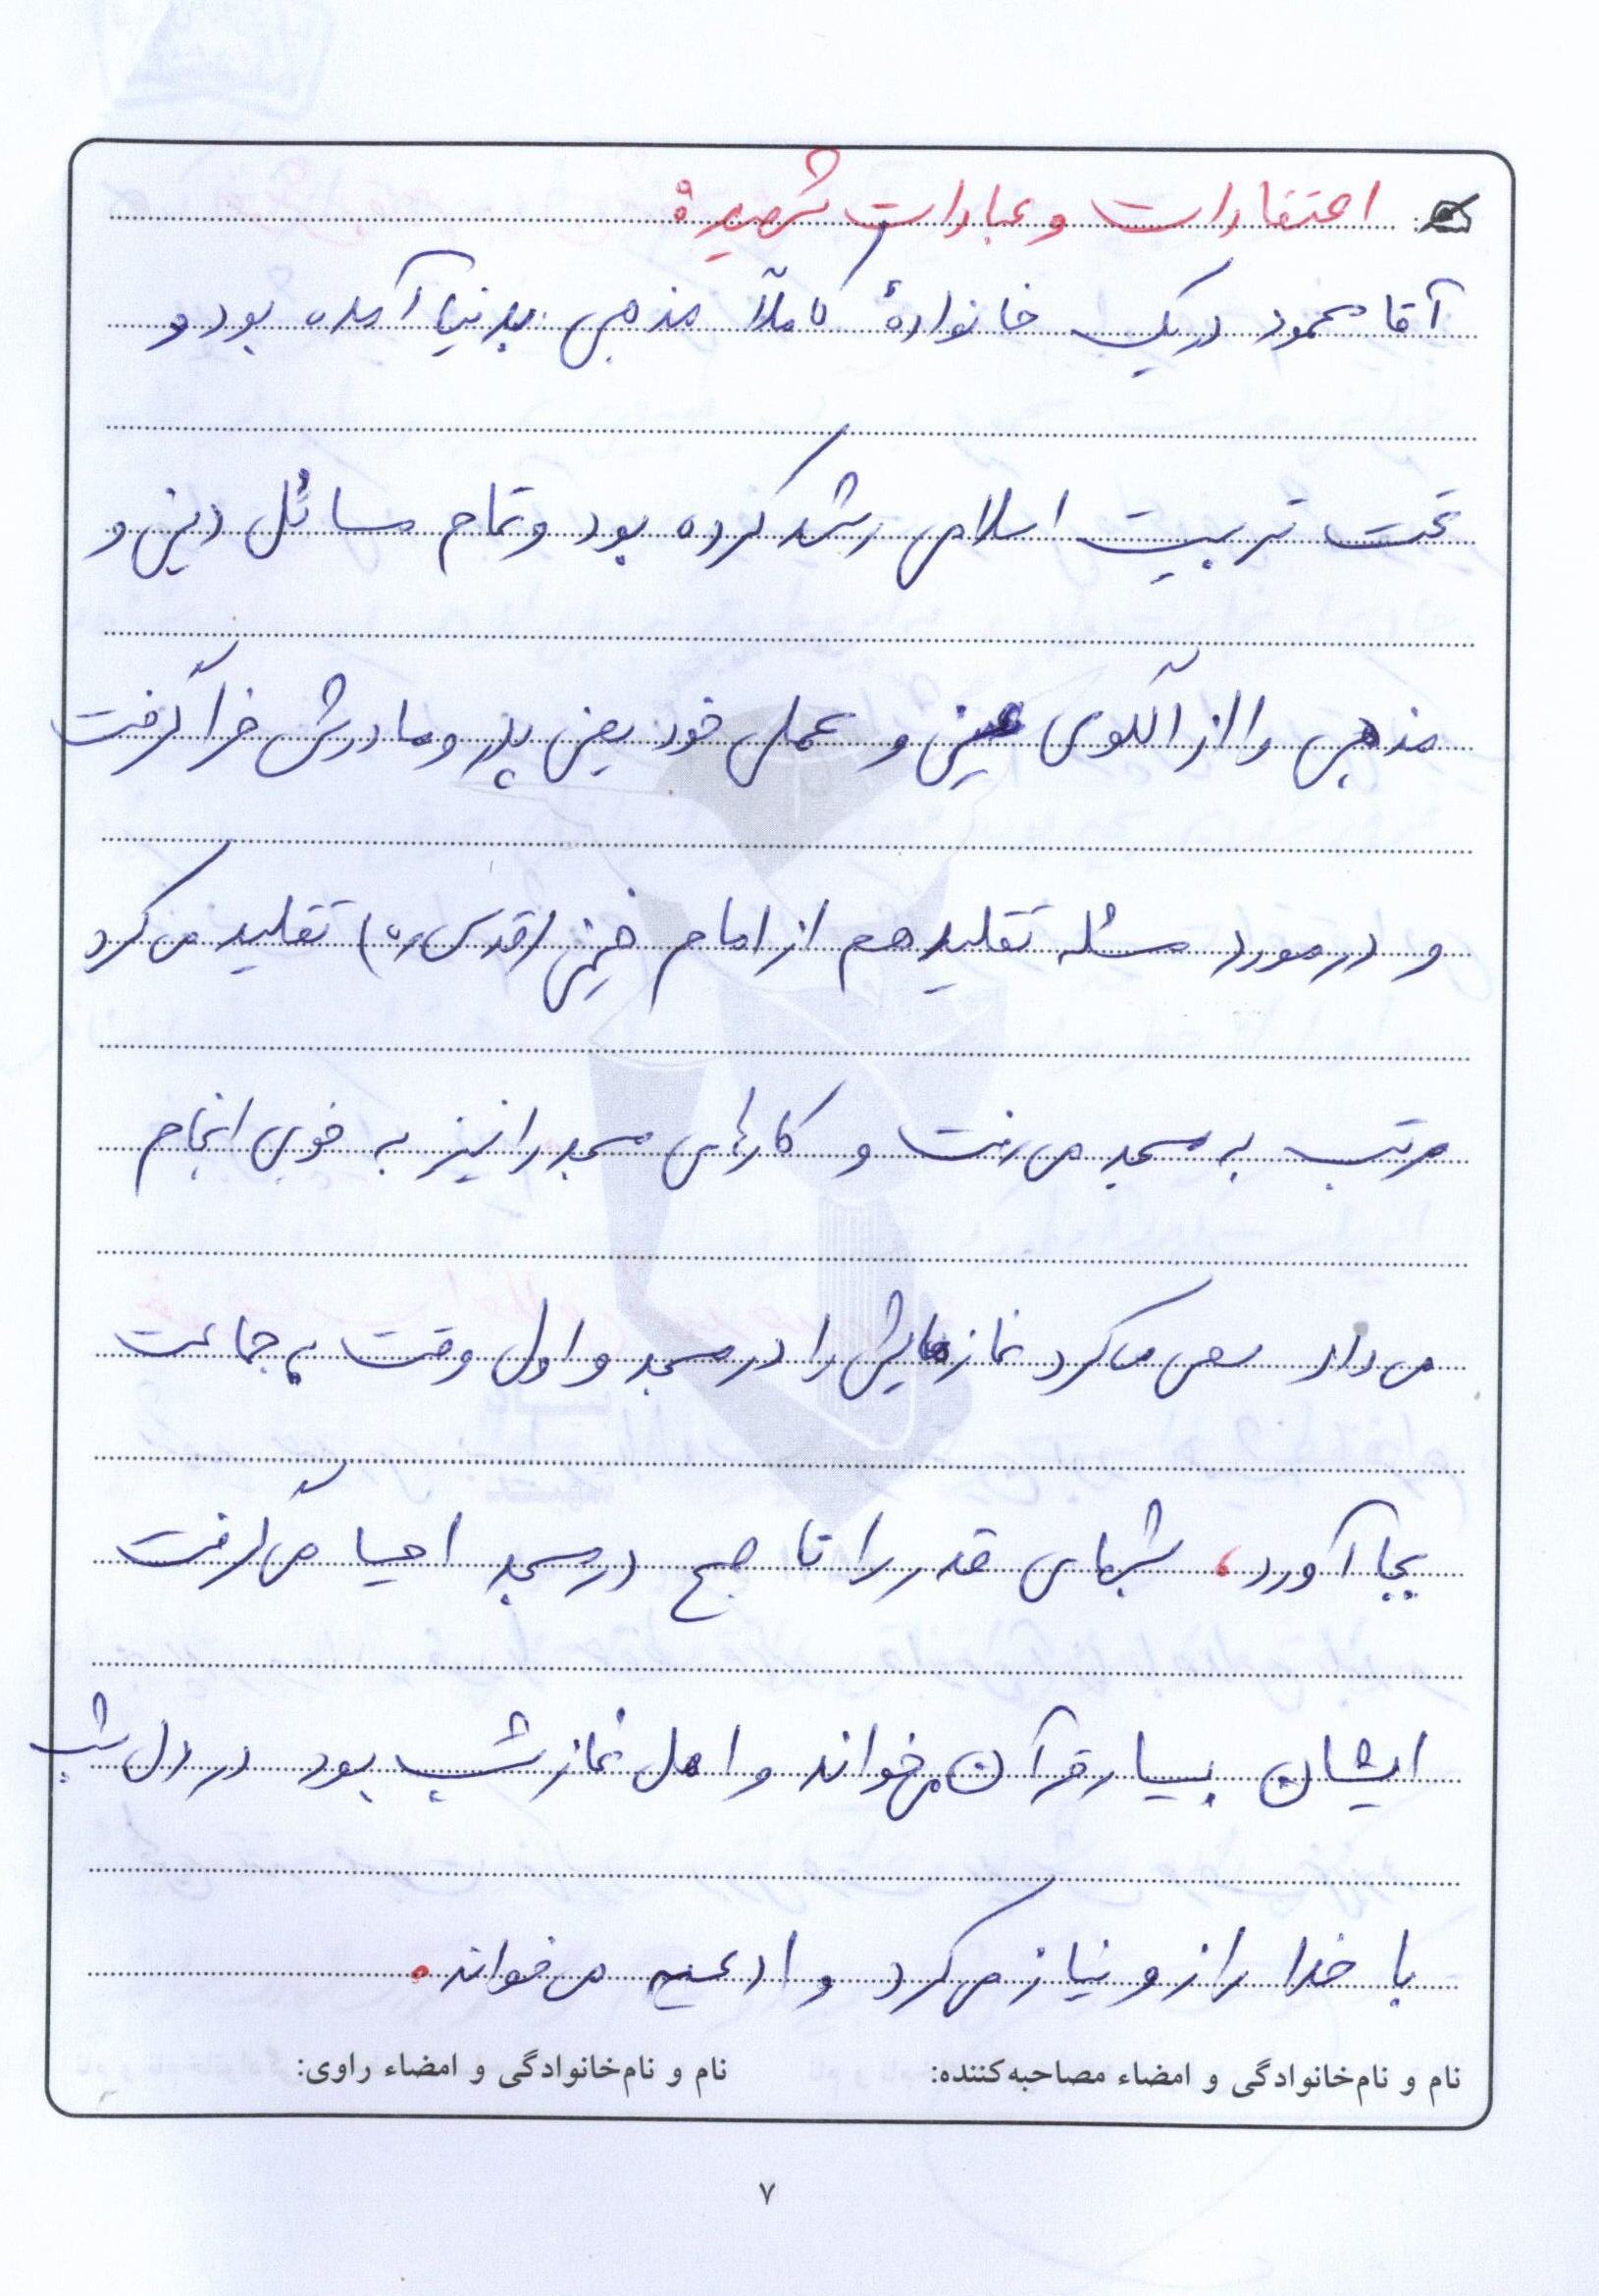 اعتقادات و عبادات شهید:
آقا محمود در یک خانوادهٔ کاملاً مذهبی بدنیا آمده بود و
تحت تربیت اسلامی رشد کرده بود و تمام مسائل دینی و
مذهبی را از الگوی عینی و عملی خود یعنی پدر و مادرش فرا گرفت
و در مورد مسئله تقلید هم از امام خمینی (قدس ره) تقلید می کرد
مرتب به مسجد می رفت و کارهای مسجد را نیز به خوبی انجام
می داد سعی می کرد نمازهایش را در مسجد و اول وقت به جماعت
بجا آورد، شبهای قدر را تا صبح در مسجد احیا می گرفت
ایشان بسیار قرآن می خواند و اهل نماز شب بود در دل شب
با خدا راز و نیاز می کرد و ادعیه می خواند.
نام و نام‌خانوادگی و امضاء مصاحبه‌کننده: نام و نام‌خانوادگی و امضاء راوی:
۷